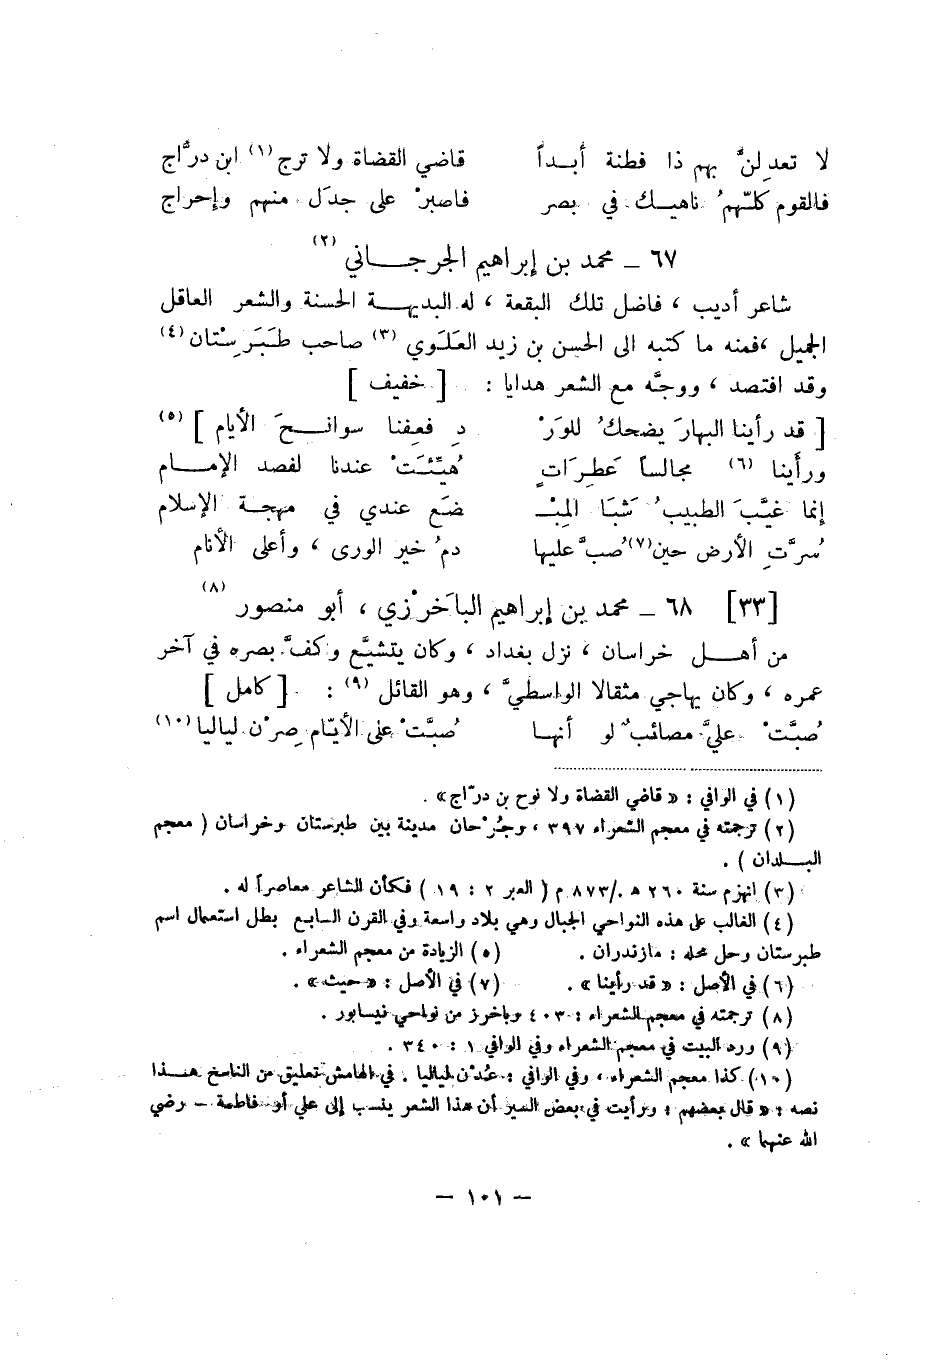 لا تعدِلنَّ بهم ذا فطنة أبـداً قاضي القضاة ولا ترج (١) ابن درَّاج
فالقوم كلّهمُ ناهيـك في بصر فاصبرْ على جدَل منهم وإحراج
٦٧ ــ محمد بن إبراهيم الجرجـاني (٢)
شاعر أديب ، فاضل تلك البقعة ، له البديهـة الحسنة والشعر العاقل
الجميل ، فمنه ما كتبه الى الحسن بن زيد العَلَوي (٣) صاحب طَبَرِسْتان (٤)
وقد افتصد ، ووجَّه مع الشعر هدايا : [ خفيف ]
[ قد رأينا البهارَ يضحكُ للورْ دِ فعِفنا سوانـحَ الأيام ] (٥)
ورأينا (٦) مجالساً عَطِرَاتٍ هُيِّئَتْ عندنا لفصد الإمـام
إنما غيَّبَ الطبيبُ شَبَا المِبْـ ضَع عندي في مهجة الإسلام
سُرَّتِ الأرض حين (٧) صُبَّ عليها دمُ خير الورى ، وأعلى الأنام
[٣٣] ٦٨ ــ محمد بن إبراهيم الباخَرْزي ، أبو منصور (٨)
من أهـل خراسان ، نزل بغداد ، وكان يتشيَّع وكفَّ بصره في آخر
عمره ، وكان يهاجي مثقالا الواسطيَّ ، وهو القائل (٩) : [ كامل ]
صُبَّتْ عليَّ مصائبٌ لو أنهـا صُبَّتْ على الأيّام صِرْن لياليا (١٠)
(١) في الوافي : « قاضي القضاة ولا نوح بن درّاج» .
(٢) ترجمته في معجم الشعراء ٣٩٧ ، وجُرْجان مدينة بين طبرستان وخراسان ( معجم
البـلدان ) .
(٣) انهزم سنة ٢٦٠ هـ /٨٧٣ م ( العبر ٢ : ١٩ ) فكأن الشاعر معاصراً له .
(٤) الغالب على هذه النواحي الجبال وهي بلاد واسعة وفي القرن السابع بطل استعمال اسم
طبرستان وحل محله : مازندران . (٥) الزيادة من معجم الشعراء .
(٦) في الأصل : « قد رأينا » . (٧) في الأصل : « حيث» .
(٨) ترجمته في معجم الشعراء : ٤٠٣ وباخرز من نواحي نيسابور .
(٩) ورد البيت في معجم الشعراء وفي الوافي ١ : ٣٤٠ .
(١٠) كذا معجم الشعراء ، وفي الوافي : عُدْن لياليا . في الهامش تعليق من الناسخ هـذا
نصه : « قال بعضهم : ورأيت في بعض السير أن هذا الشعر ينسب إلى علي أو فاطمة – رضي
الله عنهما » .
– ١٠١ –